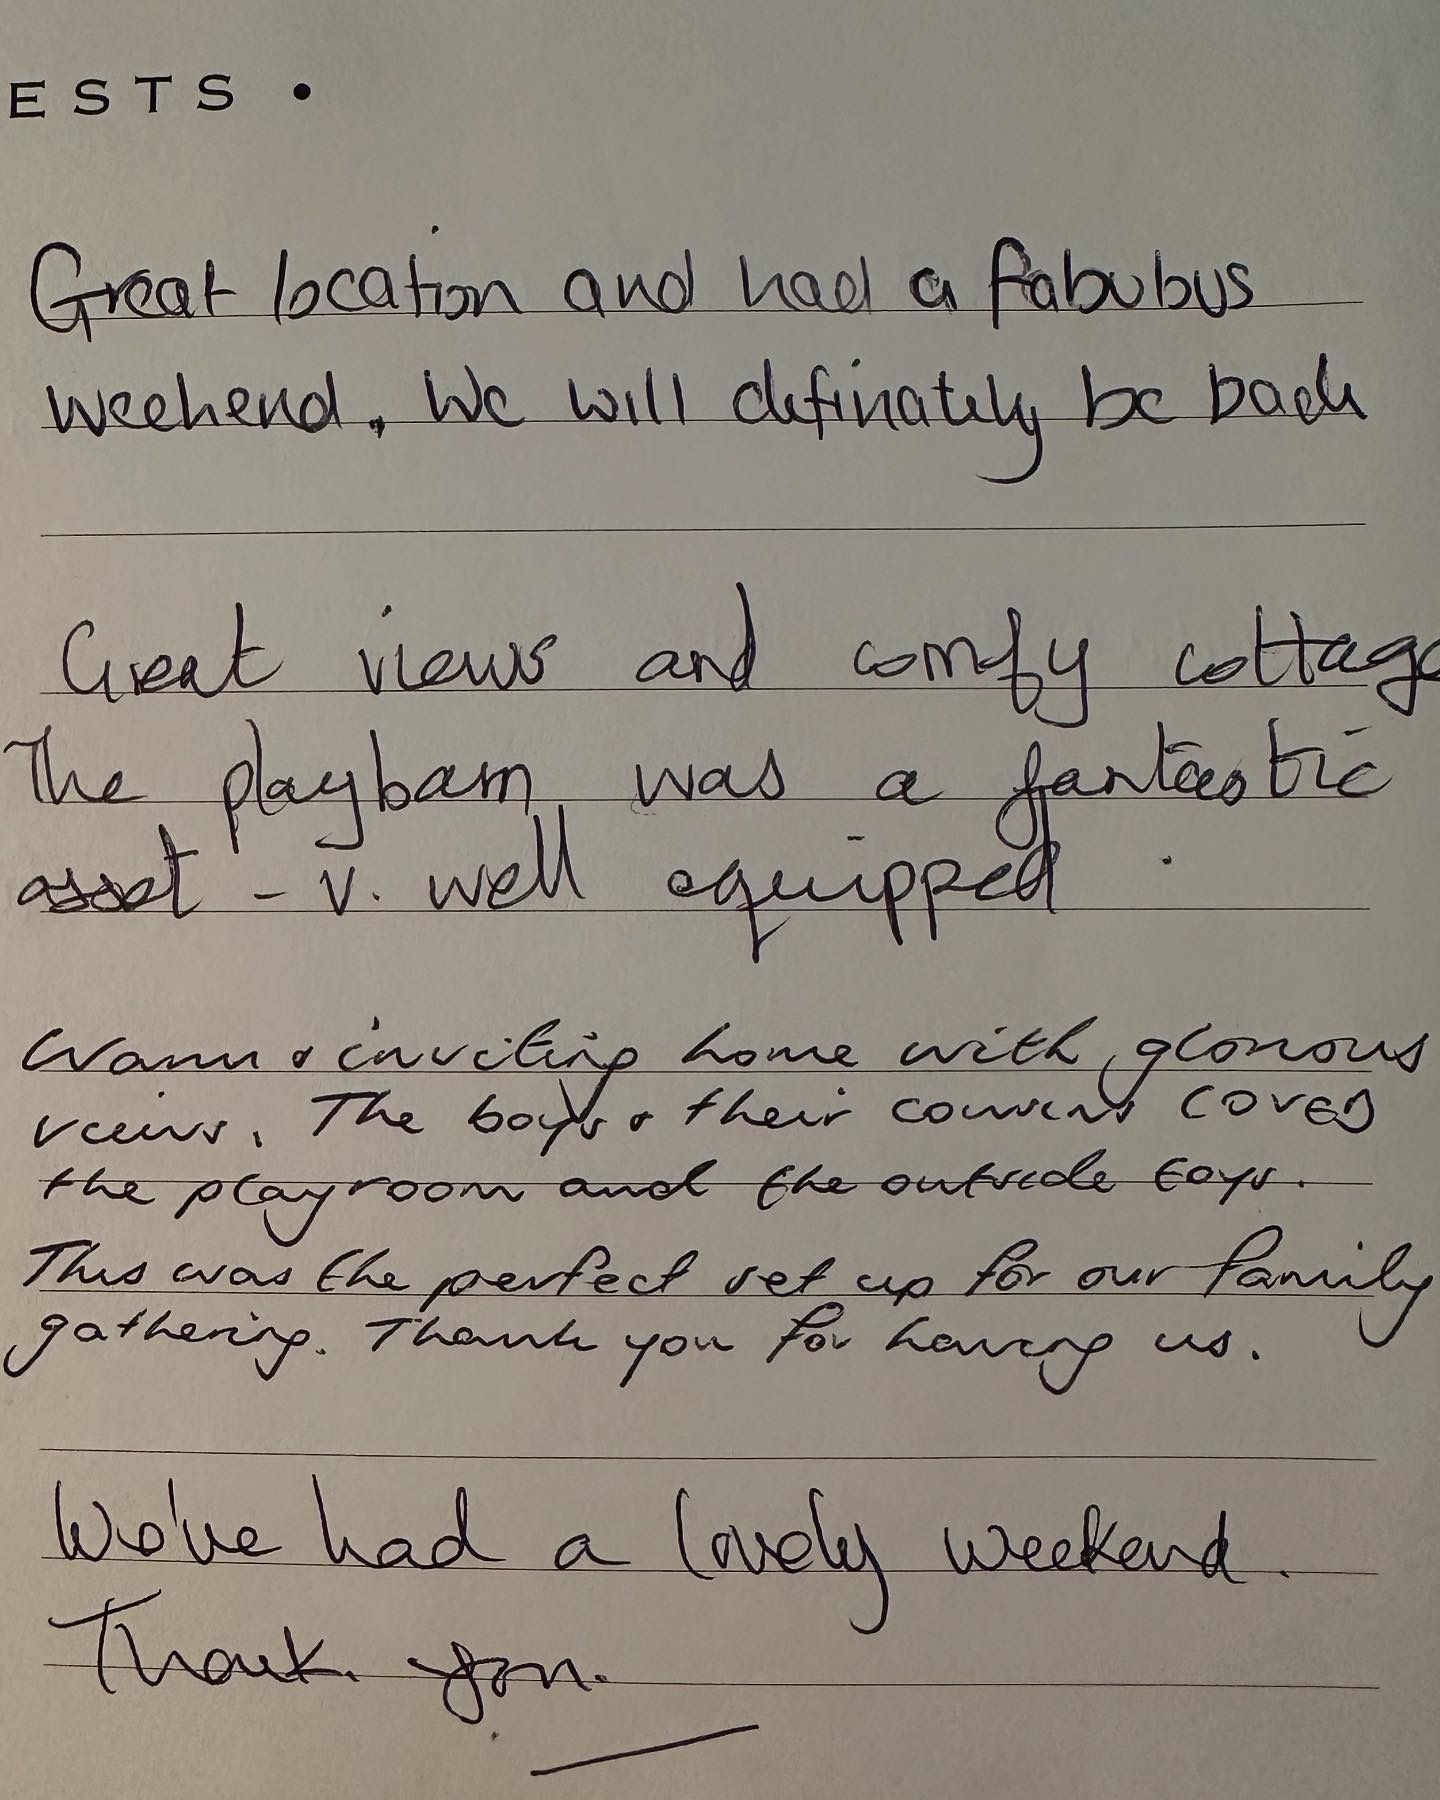 ESTS •
Great location and had a fabulous
weekend. We will definately be back
Great views and comfy cottage
The playbarn was a fantastic
asset - v. well equipped
Warm & inviting home with glorious
veiws. The boys & their cousins loved
the playroom and the outside toys.
This was the perfect set up for our family
gathering. Thank you for having us.
We've had a lovely weekend.
Thank you.